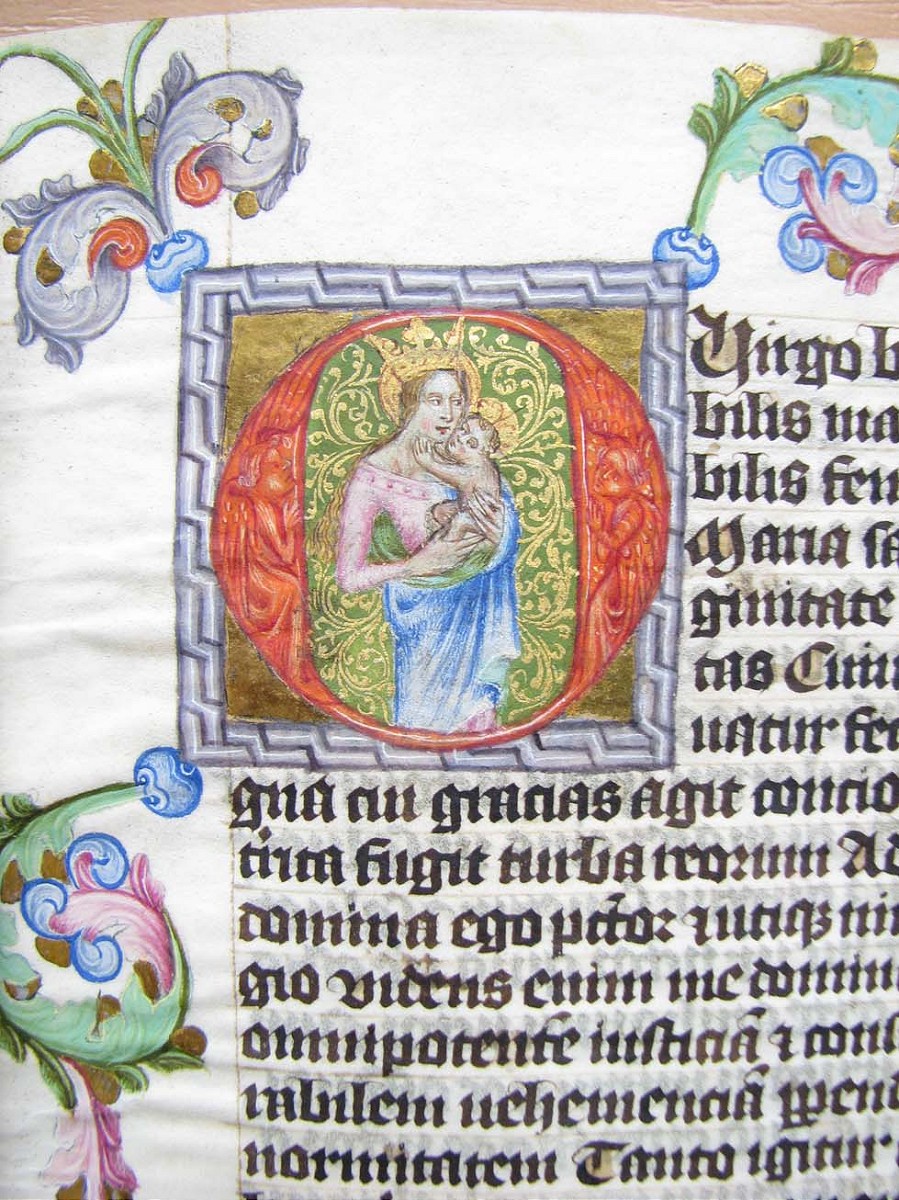 O
Virgo b
bilis ma
bilis fem
Maria sa
ginitate
tas Cuiu
uatur fer
gna cui gracias agit concio
tirita fugit turba reorum Ad
domina ego pctor ⁊ utiqꝫ nim
gio videns enim me domin
omnipotente iusticiā ⁊ cons
rabilem uehemenciā ꝑpend
normitatem Tanto igitur